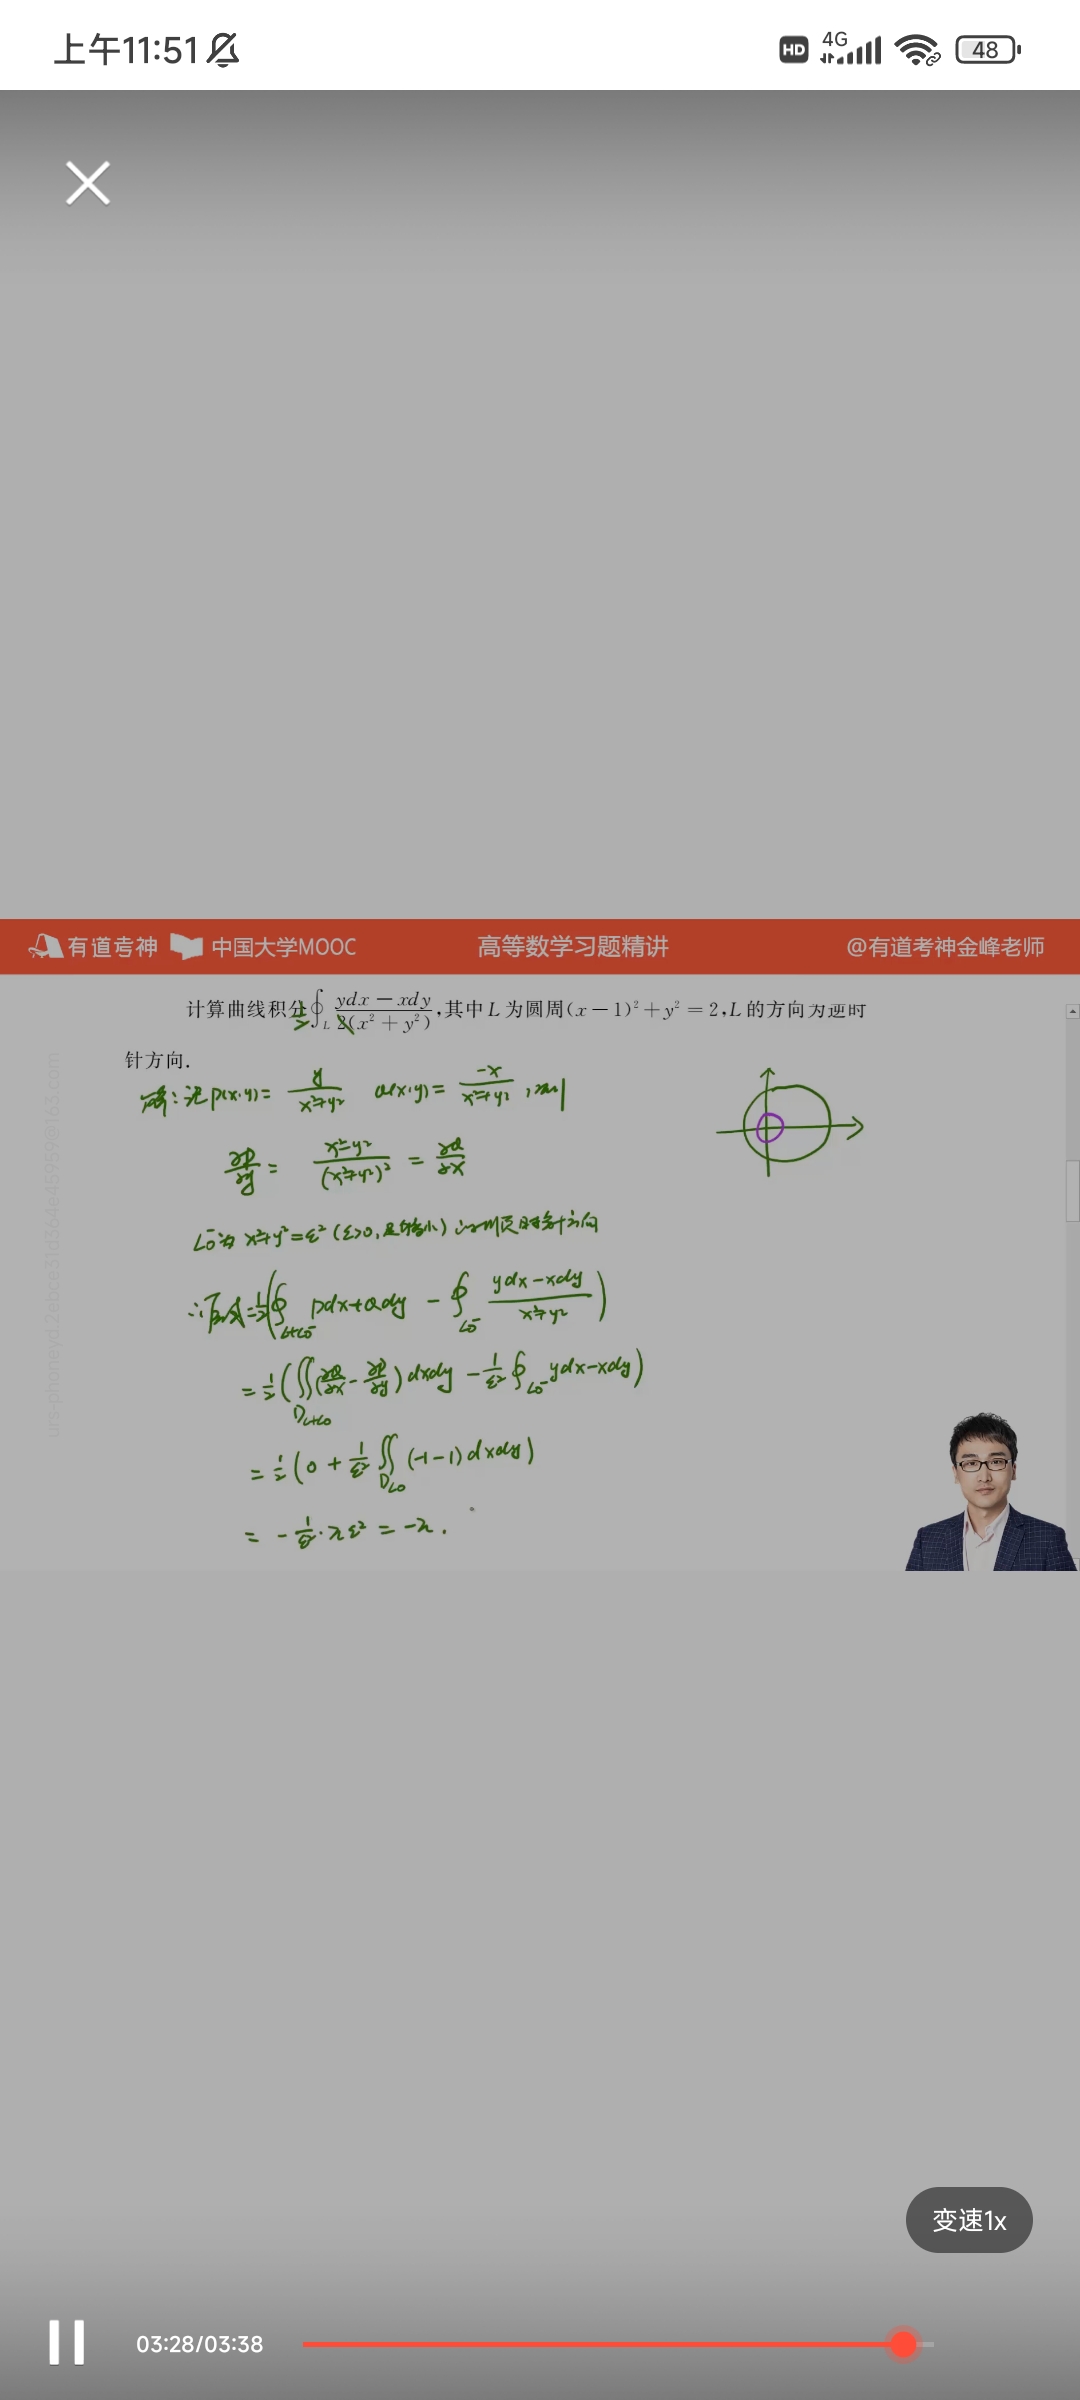 上午11:51 HD 4G 48
有道考神 中国大学MOOC 高等数学习题精讲 @有道考神金峰老师
计算曲线积分 1/2 ∮_L (ydx − xdy)/(2(x² + y²)),其中 L 为圆周(x − 1)² + y² = 2,L 的方向为逆时
针方向.
解:记 P(x,y) = y/(x²+y²) Q(x,y) = −x/(x²+y²) ,则
∂P/∂y = (x²−y²)/(x²+y²)² = ∂Q/∂x
L₀⁻为 x²+y²=ε² (ε>0,足够小) 的顺时针方向
∴原式=1/2(∮_{L+L₀⁻} Pdx+Qdy − ∮_{L₀⁻} (ydx−xdy)/(x²+y²))
=1/2(∬_{D_{L+L₀}}(∂Q/∂x − ∂P/∂y)dxdy − 1/ε² ∮_{L₀⁻} ydx−xdy)
=1/2(0 + 1/ε² ∬_{D_{L₀}} (−1−1)dxdy)
= −1/ε²·πε² = −π.
变速1x
03:28/03:38